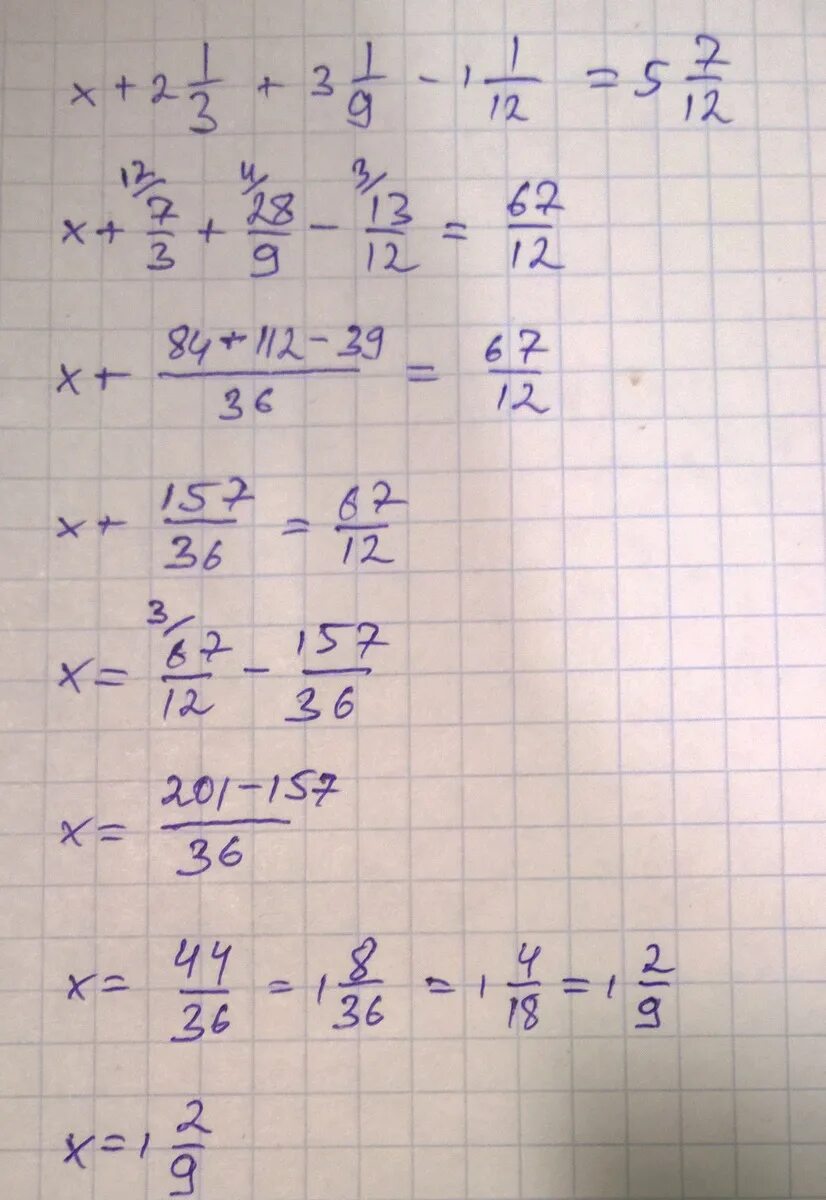 x + 2 1/3 + 3 1/9 - 1 1/12 = 5 7/12
12/ 4/ 3/
x + 7/3 + 28/9 - 13/12 = 67/12
x + (84 + 112 - 39)/36 = 67/12
x + 157/36 = 67/12
3/
x = 67/12 - 157/36
x = (201 - 157)/36
x = 44/36 = 1 8/36 = 1 4/18 = 1 2/9
x = 1 2/9